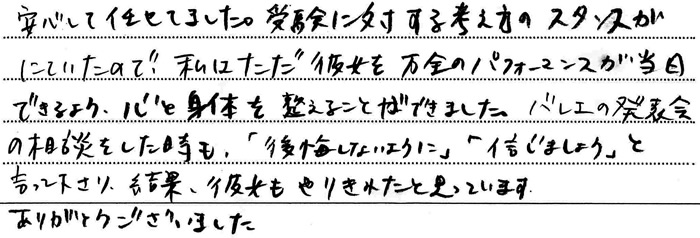 安心して任せてました。受験に対する考え方のスタンスが
にていたので、私はただ彼女を万全のパフォーマンスが当日
できるよう、心と身体を整えることができました。バレエの発表会
の相談をした時も、「後悔しないように」「信じましょう」と
言って下さり、結果、彼女もやりきれたと思っています。
ありがとうございました